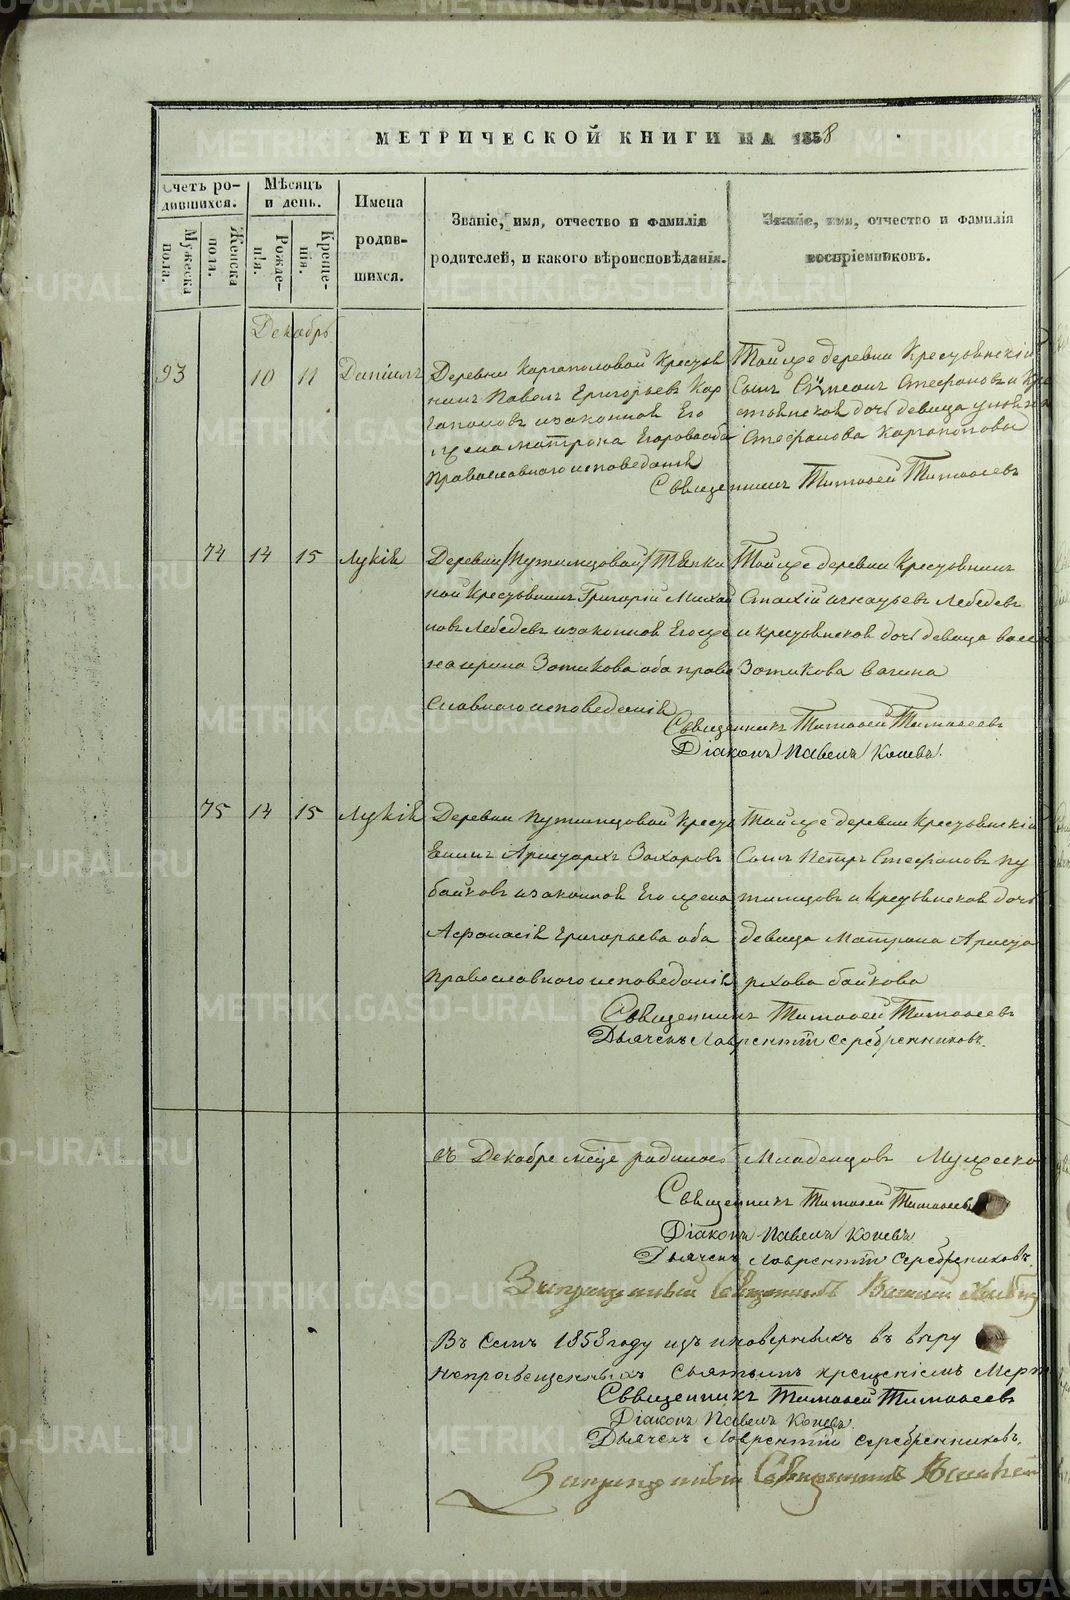 МЕТРИЧЕСКОЙ КНИГИ НА 1858
Счетъ ро-
дившихся.
Мужеска
пола.
Женска
пола.
Мѣсяцъ
и день.
Рожде-
нія.
Креще-
нія.
Имена
родив-
шихся.
Званіе, имя, отчество и фамилія
родителей, и какого вѣроисповѣданія.
Званіе, имя, отчество и фамилія
воспріемниковъ.
Декабрь
93 10 11 Даніилъ
Деревни Каргаполовой Крестья
нинъ Павелъ Григорьевъ Кар
гаполовъ и законная Его
жена Матрона Егорова оба
Православнаго исповеданія
Той же деревни Крестьянскій
Сынъ Стефановъ и Кре
стьянская дочь девица
Стефанова Каргаполовы
Священникъ Тимофей Тимофеевъ
74 14 15 Лукія
Деревни
ной Крестьянинъ Григорій Михай
ловъ Лебедевъ и законная Его же
на ирина Зотикова оба право
славнаго исповеданія
Той же деревни Крестьянинъ
игнатьевъ Лебедевъ
и крестьянская дочь девица
Зотикова вагина
Священникъ Тимофей Тимофеевъ
Діаконъ Павелъ Коневъ.
75 14 15 Лукія
Деревни Путимцовой Кресть
Янинъ Аристархъ Захаровъ
байковъ и законная Его жена
Афанасія Григорьева оба
Православнаго исповеданія
Той же деревни Крестьянскій
Сынъ Петръ Стефановъ пу
тимцовъ и Крестьянская дочь
девица Матрона Ариста
рхова байкова
Священникъ Тимофей Тимофеевъ
Дьячекъ Лаврентій Серебренниковъ.
въ Декабре м-це родилось Младенцовъ Мужеска
Священникъ Тимофей Тимофеевъ
Діаконъ Павелъ Коневъ
Дьячекъ Лаврентій Серебрениковъ.
Священникъ
Въ Семъ 1858 году изъ иноверныхъ въ веру
Непросвещенныхъ Святымъ крещеніемъ
Священникъ Тимофей Тимофеевъ
Діаконъ Павелъ Коневъ
Дьячекъ Лаврентій Серебренниковъ.
Священникъ
METRIKI.GASO-URAL.RU